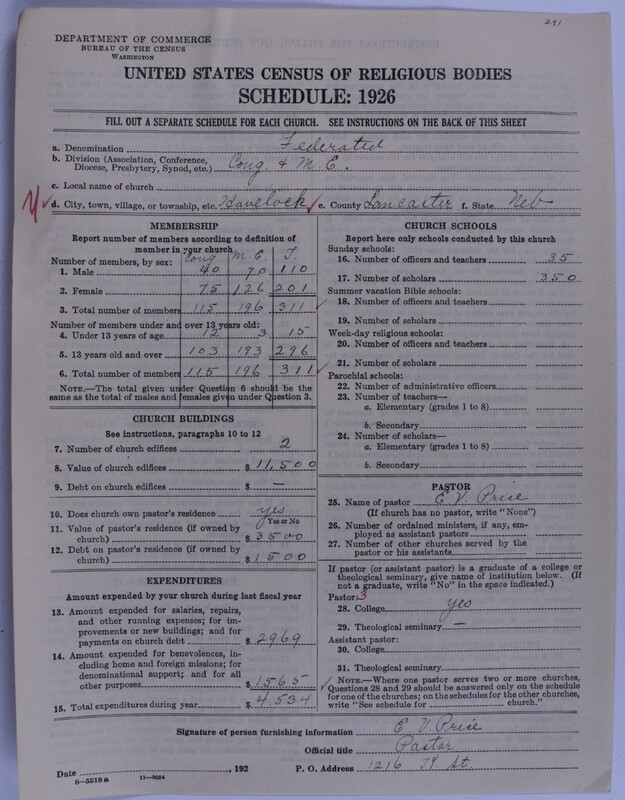 291
DEPARTMENT OF COMMERCE
BUREAU OF THE CENSUS
WASHINGTON
UNITED STATES CENSUS OF RELIGIOUS BODIES
SCHEDULE: 1926
FILL OUT A SEPARATE SCHEDULE FOR EACH CHURCH. SEE INSTRUCTIONS ON THE BACK OF THIS SHEET
a. Denomination Federated
b. Division (Association, Conference, Diocese, Presbytery, Synod, etc.) Cong. & M. E.
c. Local name of church
d. City, town, village, or township, etc. Havelock e. County Lancaster f. State Neb
MEMBERSHIP
Report number of members according to definition of member in your church
Number of members, by sex: Cong M. E. T.
1. Male 40 70 110
2. Female 75 126 201
3. Total number of members 115 196 311
Number of members under and over 13 years old:
4. Under 13 years of age 12 3 15
5. 13 years old and over 103 193 296
6. Total number of members 115 196 311
NOTE.—The total given under Question 6 should be the same as the total of males and females given under Question 3.
CHURCH BUILDINGS
See instructions, paragraphs 10 to 12
7. Number of church edifices 2
8. Value of church edifices $ 11,500
9. Debt on church edifices $ —
10. Does church own pastor's residence yes
Yes or No
11. Value of pastor's residence (if owned by church) $ 3500
12. Debt on pastor's residence (if owned by church) $ 1500
EXPENDITURES
Amount expended by your church during last fiscal year
13. Amount expended for salaries, repairs, and other running expenses; for improvements or new buildings; and for payments on church debt $ 2969
14. Amount expended for benevolences, including home and foreign missions; for denominational support; and for all other purposes $ 1565
15. Total expenditures during year $ 4534
CHURCH SCHOOLS
Report here only schools conducted by this church
Sunday schools:
16. Number of officers and teachers 35
17. Number of scholars 350
Summer vacation Bible schools:
18. Number of officers and teachers
19. Number of scholars
Week-day religious schools:
20. Number of officers and teachers
21. Number of scholars
Parochial schools:
22. Number of administrative officers
23. Number of teachers—
a. Elementary (grades 1 to 8)
b. Secondary
24. Number of scholars—
a. Elementary (grades 1 to 8)
b. Secondary
PASTOR
25. Name of pastor E V Price
(If church has no pastor, write "None")
26. Number of ordained ministers, if any, employed as assistant pastors
27. Number of other churches served by the pastor or his assistants
If pastor (or assistant pastor) is a graduate of a college or theological seminary, give name of institution below. (If not a graduate, write "No" in the space indicated.)
Pastor: 3
28. College yes
29. Theological seminary —
Assistant pastor:
30. College
31. Theological seminary
NOTE.—Where one pastor serves two or more churches, Questions 28 and 29 should be answered only on the schedule for one of the churches; on the schedules for the other churches, write "See schedule for church."
Signature of person furnishing information E V Price
Official title Pastor
Date , 192 P. O. Address 1216 St.
8—5518 a 11—9664